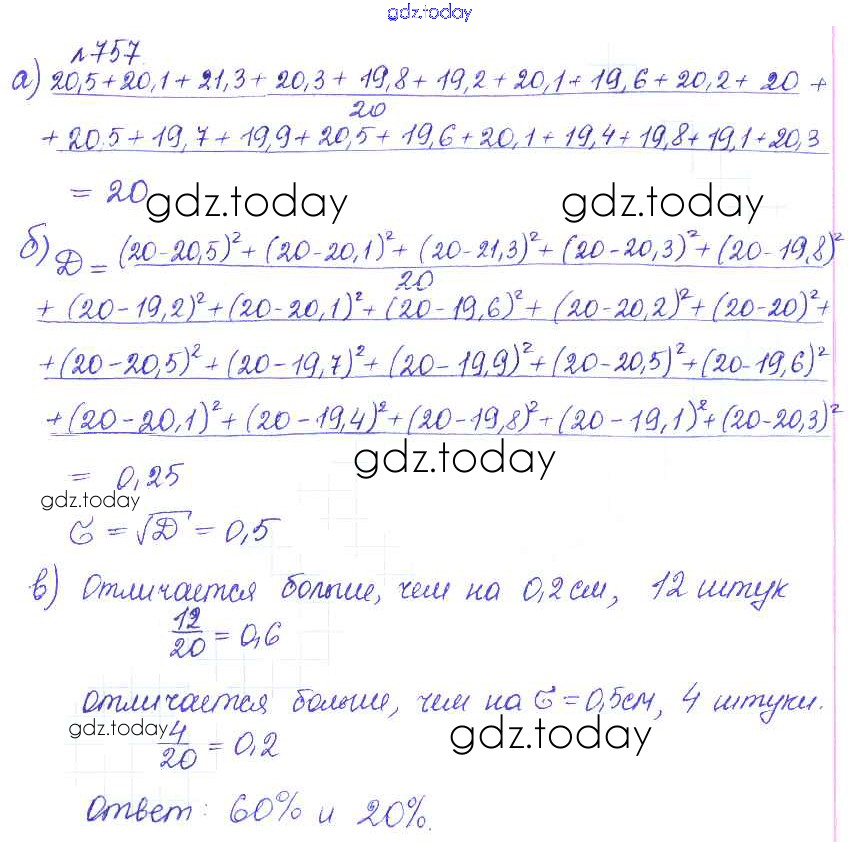 gdz.today
№757.
а) 20,5+20,1+21,3+20,3+19,8+19,2+20,1+19,6+20,2+20+
20
+20,5+19,7+19,9+20,5+19,6+20,1+19,4+19,8+19,1+20,3
= 20
gdz.today gdz.today
б) D = (20-20,5)²+(20-20,1)²+(20-21,3)²+(20-20,3)²+(20-19,8)²
20
+(20-19,2)²+(20-20,1)²+(20-19,6)²+(20-20,2)²+(20-20)²+
+(20-20,5)²+(20-19,7)²+(20-19,9)²+(20-20,5)²+(20-19,6)²
+(20-20,1)²+(20-19,4)²+(20-19,8)²+(20-19,1)²+(20-20,3)²
gdz.today
= 0,25
gdz.today
σ = √D = 0,5
в) Отличается больше, чем на 0,2см, 12 штук
12/20 = 0,6
Отличается больше, чем на σ=0,5см, 4 штуки.
gdz.today
4/20 = 0,2
gdz.today
Ответ: 60% и 20%.